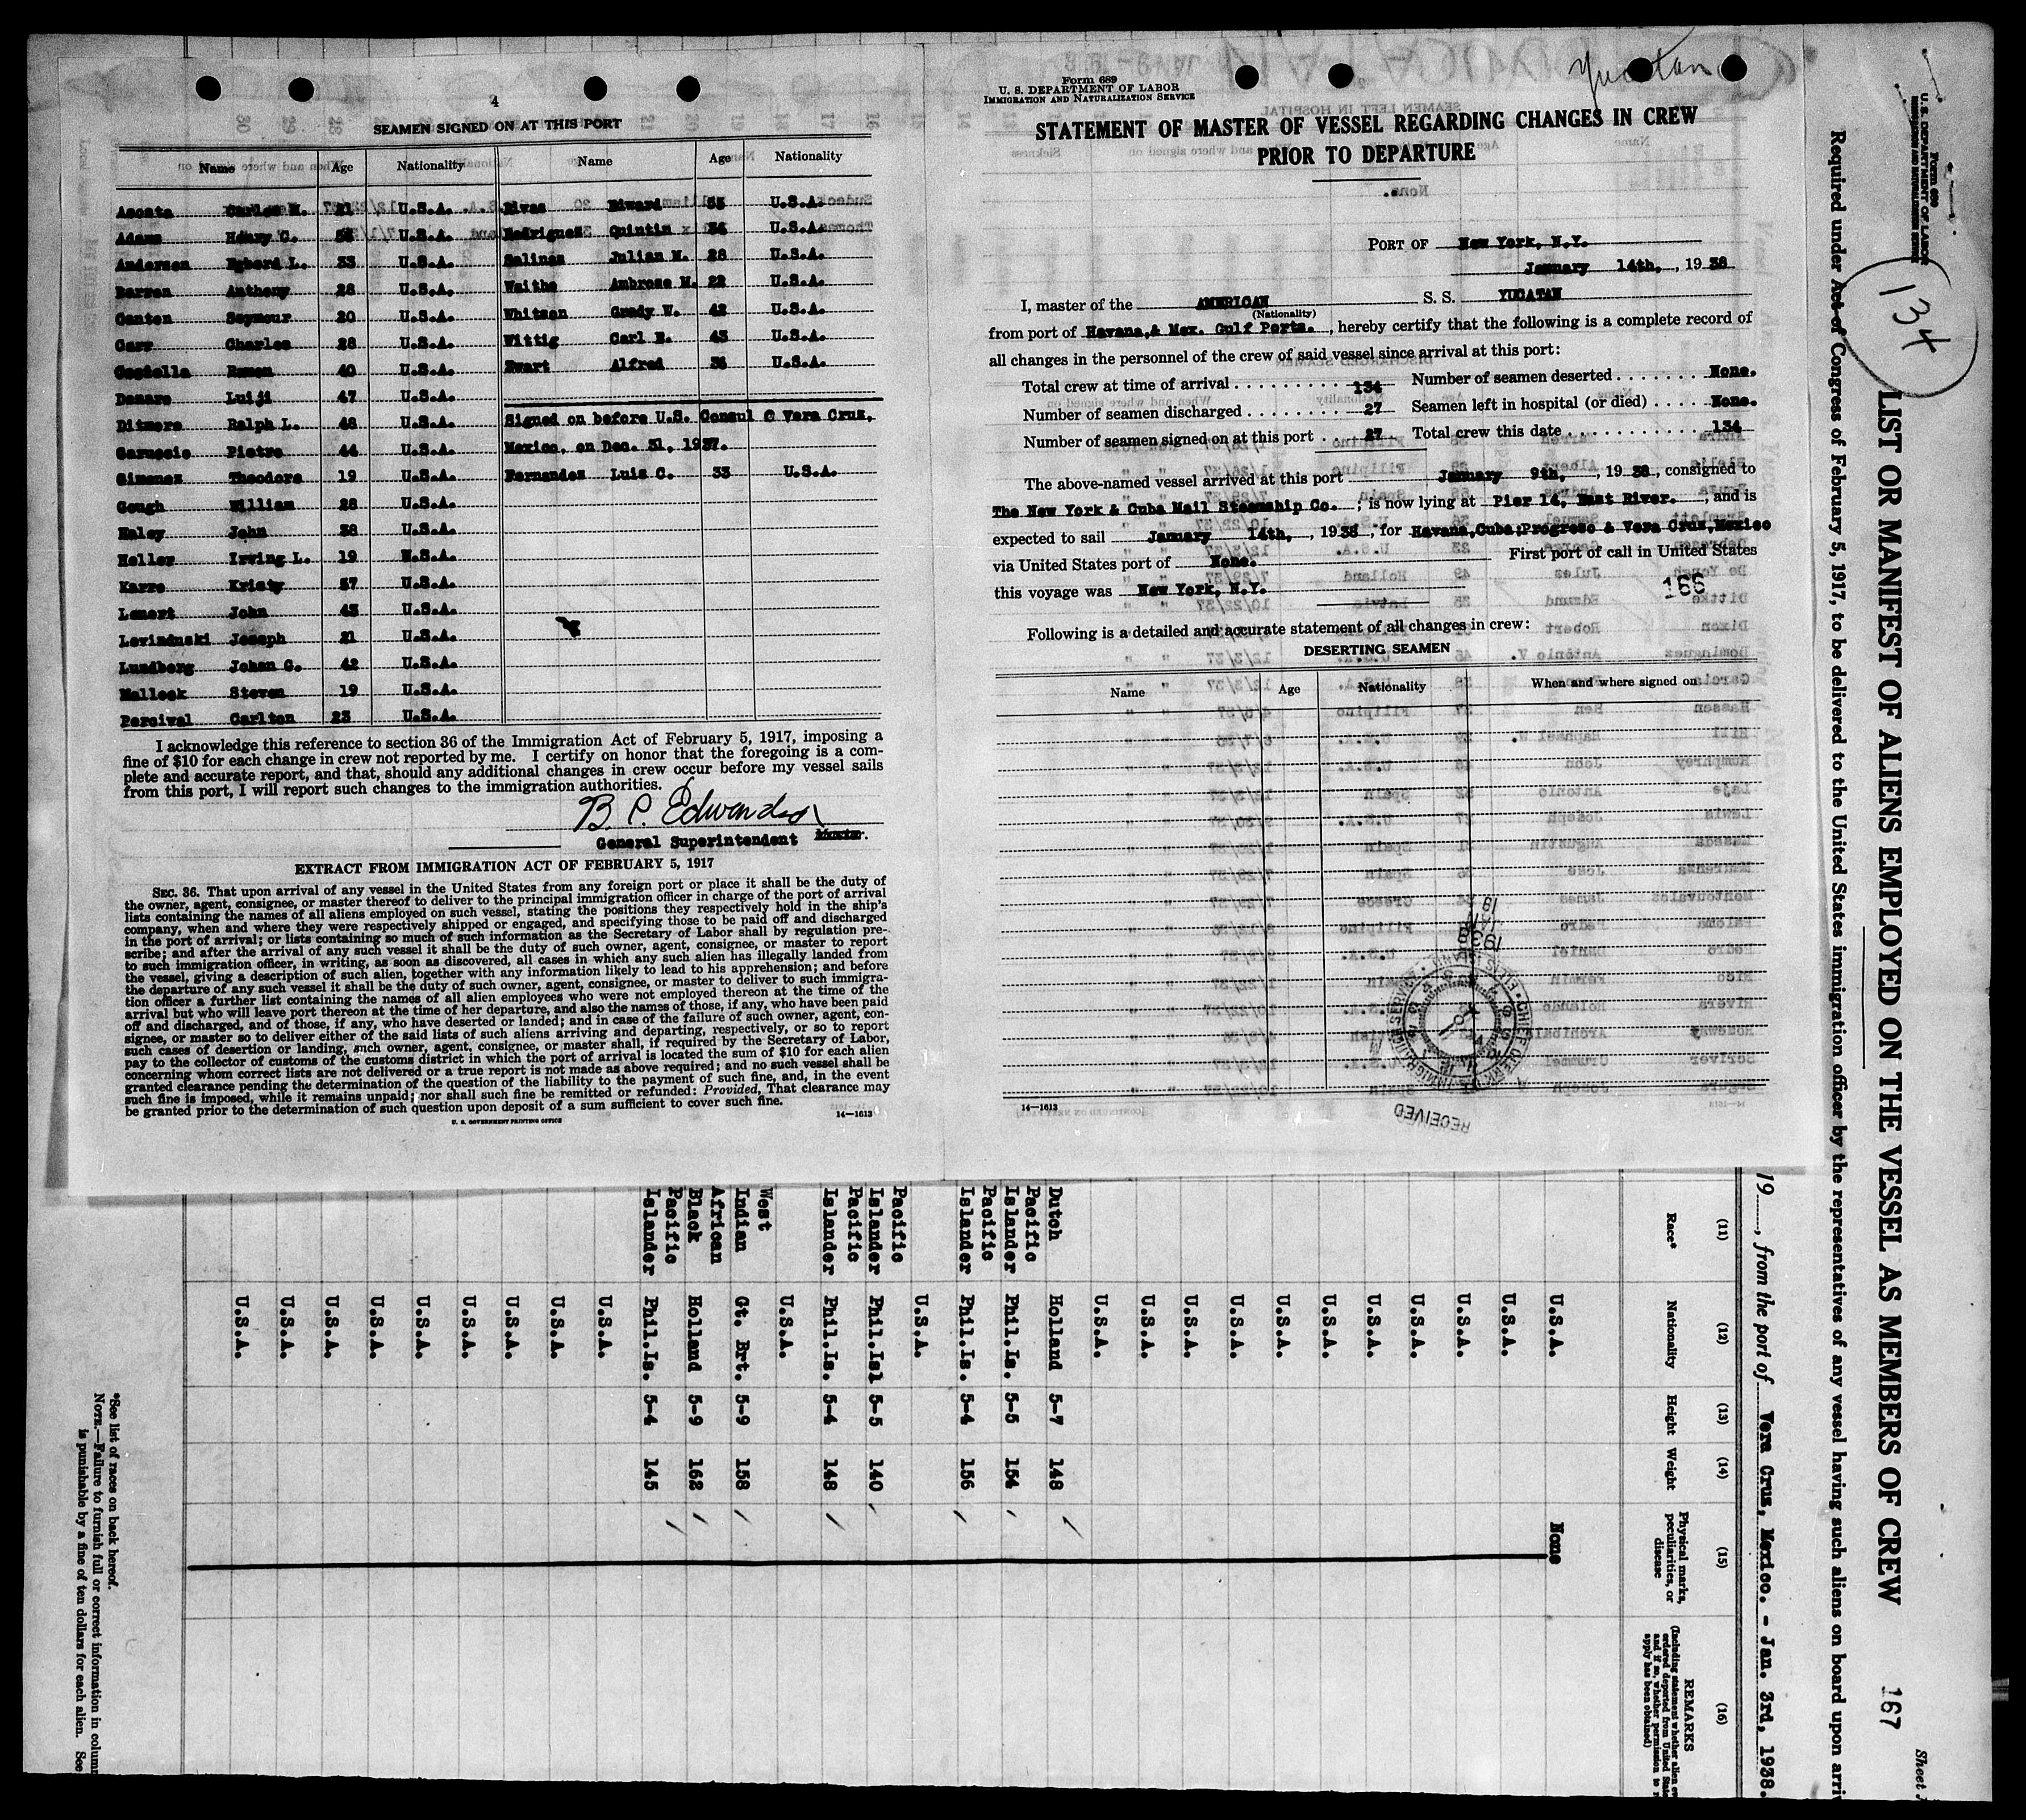 4
SEAMEN SIGNED ON AT THIS PORT
Name Age Nationality Name Age Nationality
Carlos M. 21 U.S.A. Rivas Edward 35 U.S.A.
Adams Henry C. U.S.A. Rodriguez Quintin 34 U.S.A.
Andersen L. 33 U.S.A. Salinas Julian M. 28 U.S.A.
Anthony 28 U.S.A. Waithe Ambrose M. 22 U.S.A.
Canton Seymour 20 U.S.A. Whitson Grady W. 42 U.S.A.
Carr Charles 28 U.S.A. Wittig Carl 43 U.S.A.
Costella Ramon 40 U.S.A. Zwart Alfred 36 U.S.A.
Luiji 47 U.S.A.
Ditmore Ralph L. 48 U.S.A. Signed on before U.S. Consul @ Vera Cruz,
Pietro 44 U.S.A. Mexico, on Dec. 31, 1937.
Gimenez Theodore 19 U.S.A. Fernandez Luis C. 33 U.S.A.
Gough William 28 U.S.A.
Haley John 38 U.S.A.
Heller Irving L. 19 U.S.A.
Karro 57 U.S.A.
Lemert John 43 U.S.A.
Levindnski Joseph 21 U.S.A.
Lundberg Johan G. 42 U.S.A.
Malleek Steven 19 U.S.A.
Percival Carlton 23 U.S.A.
I acknowledge this reference to section 36 of the Immigration Act of February 5, 1917, imposing a
fine of $10 for each change in crew not reported by me. I certify on honor that the foregoing is a com-
plete and accurate report, and that, should any additional changes in crew occur before my vessel sails
from this port, I will report such changes to the immigration authorities.
B. P. Edwards
General Superintendent Master.
EXTRACT FROM IMMIGRATION ACT OF FEBRUARY 5, 1917
SEC. 36. That upon arrival of any vessel in the United States from any foreign port or place it shall be the duty of
the owner, agent, consignee, or master thereof to deliver to the principal immigration officer in charge of the port of arrival
lists containing the names of all aliens employed on such vessel, stating the positions they respectively hold in the ship's
company, when and where they were respectively shipped or engaged, and specifying those to be paid off and discharged
in the port of arrival; or lists containing so much of such information as the Secretary of Labor shall by regulation pre-
scribe; and after the arrival of any such vessel it shall be the duty of such owner, agent, consignee, or master to report
to such immigration officer, in writing, as soon as discovered, all cases in which any such alien has illegally landed from
the vessel, giving a description of such alien, together with any information likely to lead to his apprehension; and before
the departure of any such vessel it shall be the duty of such owner, agent, consignee, or master to deliver to such immigra-
tion officer a further list containing the names of all alien employees who were not employed thereon at the time of the
arrival but who will leave port thereon at the time of her departure, and also the names of those, if any, who have been paid
off and discharged, and of those, if any, who have deserted or landed; and in case of the failure of such owner, agent, con-
signee, or master so to deliver either of the said lists of such aliens arriving and departing, respectively, or so to report
such cases of desertion or landing, such owner, agent, consignee, or master shall, if required by the Secretary of Labor,
pay to the collector of customs of the customs district in which the port of arrival is located the sum of $10 for each alien
concerning whom correct lists are not delivered or a true report is not made as above required; and no such vessel shall be
granted clearance pending the determination of the question of the liability to the payment of such fine, and, in the event
such fine is imposed, while it remains unpaid; nor shall such fine be remitted or refunded: Provided, That clearance may
be granted prior to the determination of such question upon deposit of a sum sufficient to cover such fine.
U. S. GOVERNMENT PRINTING OFFICE 14—1613
Yucatan
Form 689
U. S. DEPARTMENT OF LABOR
IMMIGRATION AND NATURALIZATION SERVICE
STATEMENT OF MASTER OF VESSEL REGARDING CHANGES IN CREW
PRIOR TO DEPARTURE
PORT OF New York, N.Y.
January 14th, , 19 38
I, master of the AMERICAN S. S. YUCATAN
(Nationality)
from port of Havana,& Mex. Gulf Ports. , hereby certify that the following is a complete record of
all changes in the personnel of the crew of said vessel since arrival at this port:
Total crew at time of arrival . . . . . . . . . . 134 Number of seamen deserted . . . . . . . None.
Number of seamen discharged . . . . . . . . 27 Seamen left in hospital (or died) . . . . None.
Number of seamen signed on at this port . . 27 Total crew this date . . . . . . . . . . . 134
The above-named vessel arrived at this port January 9th, , 19 38 , consigned to
The New York & Cuba Mail Steamship Co. ; is now lying at Pier 14, East River. , and is
expected to sail January 14th, , 19 38 , for Havana,Cuba;Progreso & Vera Cruz,Mexico
via United States port of None. First port of call in United States
this voyage was New York, N.Y. 166
Following is a detailed and accurate statement of all changes in crew:
DESERTING SEAMEN
Name Age Nationality When and where signed on
14—1613
RECEIVED
CHIEF CLERK
IMMIGRATION SERVICE
ELLIS ISLAND
JAN 18 1938
Form 680
U. S. DEPARTMENT OF LABOR
IMMIGRATION AND NATURALIZATION SERVICE
134
LIST OR MANIFEST OF ALIENS EMPLOYED ON THE VESSEL AS MEMBERS OF CREW 167
Sheet
Required under Act of Congress of February 5, 1917, to be delivered to the United States immigration officer by the representatives of any vessel having such aliens on board upon arri
19 , from the port of Vera Cruz, Mexico. - Jan. 3rd, 1938.
(11) (12) (13) (14) (15) (16)
Race* Nationality Height Weight Physical marks, peculiarities, or disease REMARKS
(Including statement whether alien
ordered deported from United State
and if so, whether permission to
apply has been obtained)
U.S.A. None
U.S.A.
U.S.A.
U.S.A.
U.S.A.
U.S.A.
U.S.A.
U.S.A.
U.S.A.
U.S.A.
U.S.A.
Dutch Holland 5-7 148
Pacific Islander Phil.Is. 5-5 154
Pacific Islander Phil.Is. 5-4 156
U.S.A.
Pacific Islander Phil.Isl 5-5 140
Pacific Islander Phil.Is. 5-4 148
U.S.A.
West Indian Gt. Brt. 5-9 158
African Black Holland 5-9 162
Pacific Islander Phil.Is. 5-4 145
U.S.A.
U.S.A.
U.S.A.
U.S.A.
U.S.A.
U.S.A.
U.S.A.
U.S.A.
U.S.A.
*See list of races on back hereof.
NOTE.—Failure to furnish full or correct information in column
is punishable by a fine of ten dollars for each alien. See